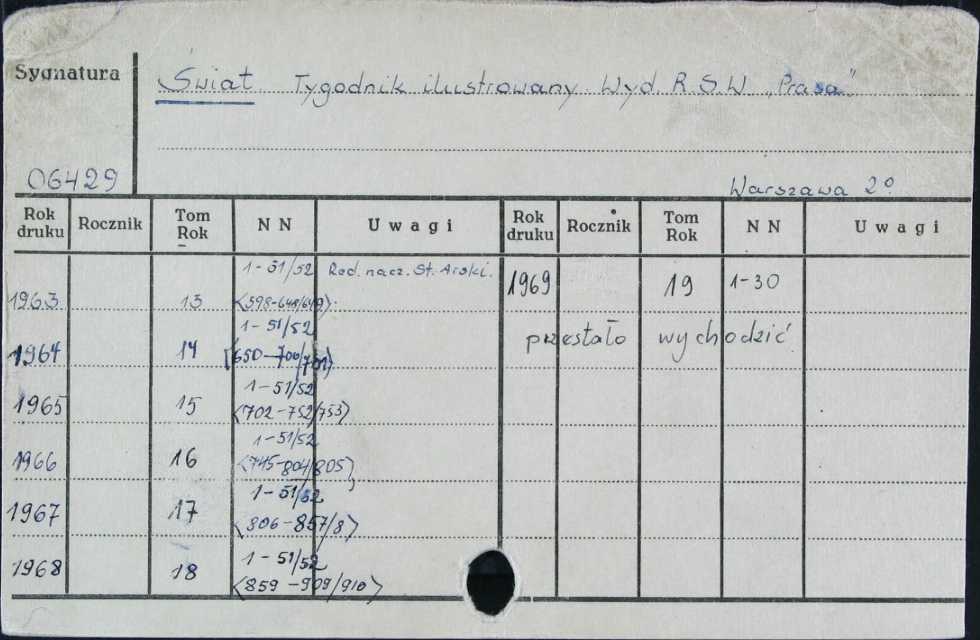 Sygnatura
Świat. Tygodnik ilustrowany. Wyd. R.S.W. „Prasa"
06429
Warszawa 2º
Rok druku Rocznik Tom Rok NN Uwagi Rok druku Rocznik Tom Rok NN Uwagi
1963 13 1-51/52 <598-648/649> Red. nacz. St. Arski. 1969 19 1-30
1964 14 1-51/52 <650-700/701> przestało wychodzić
1965 15 1-51/52 <702-752/753>
1966 16 1-51/52 <745-804/805>
1967 17 1-51/52 <806-857/8>
1968 18 1-51/52 <859-909/910>